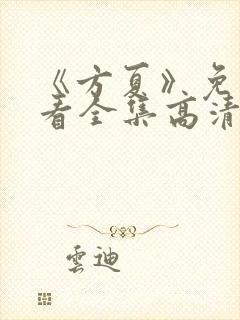 《方夏》免
看全集高清
雲迪